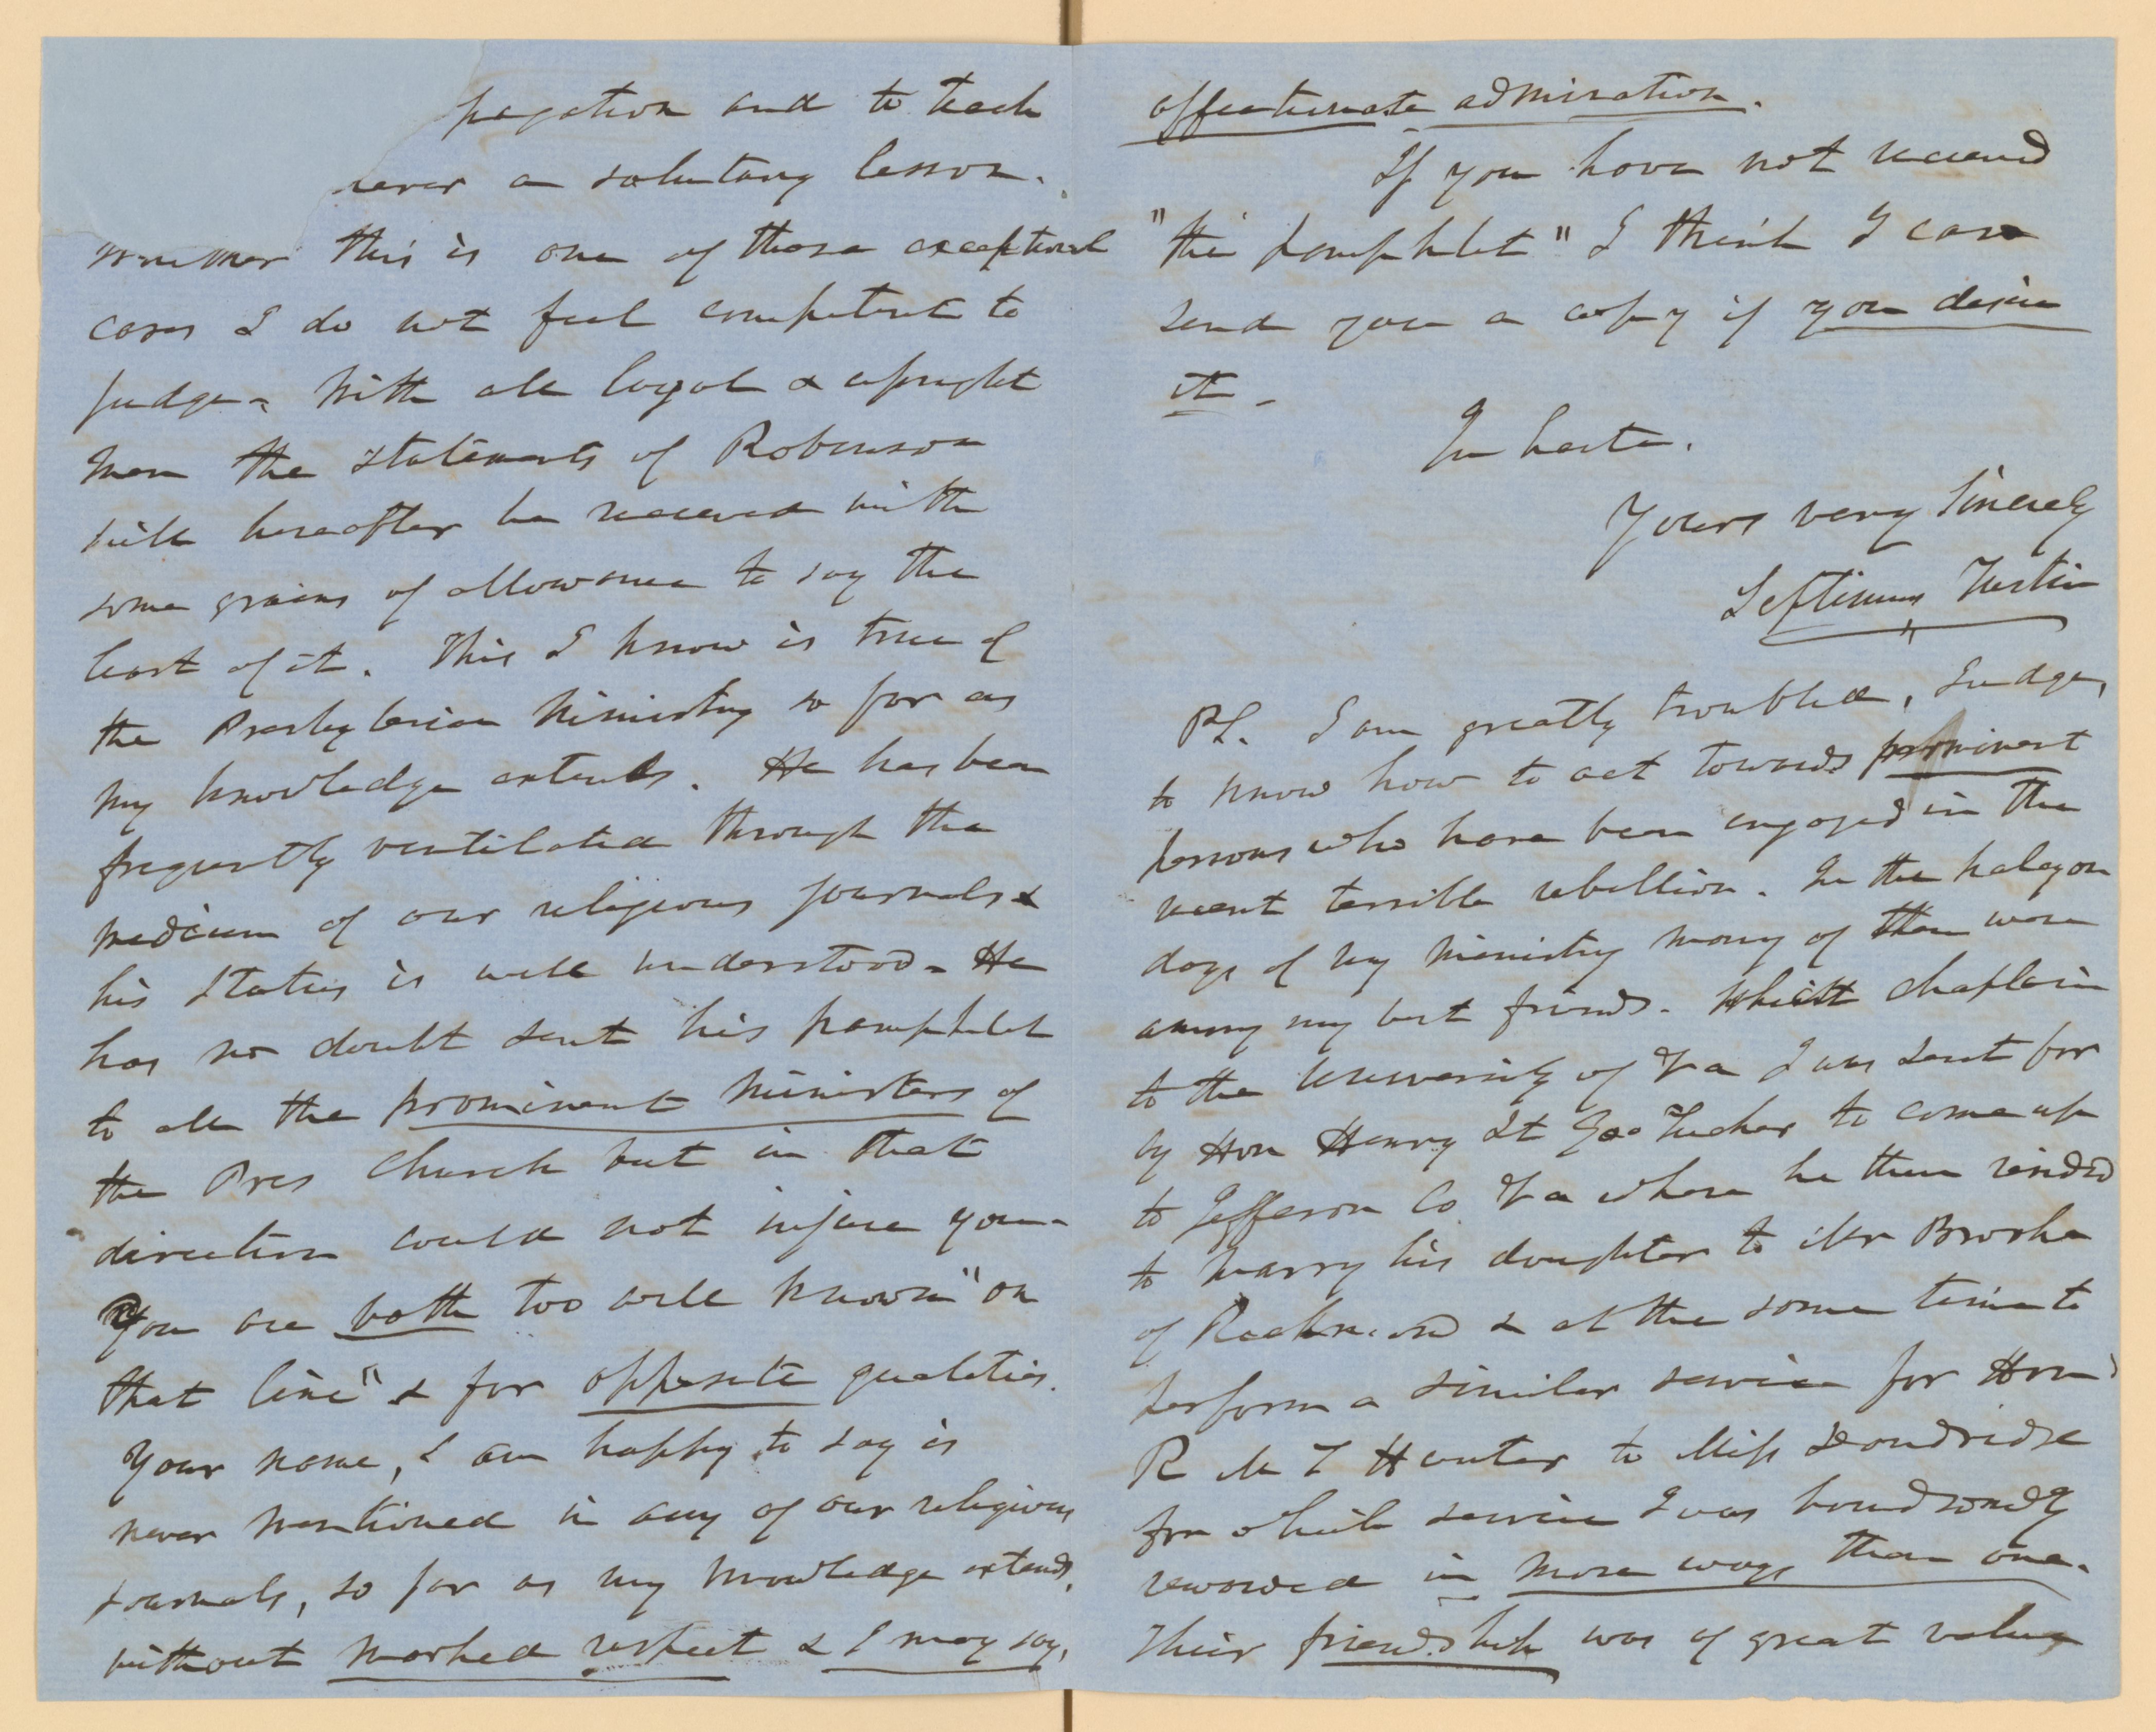 pagation and to teach
never a salutary lesson.
Whether this is one of those exceptional
cases I do not feel competent to
judge - With all loyal & upright
men the statements of Robinson
will hereafter be received with
some grains of allowance to say the
least of it. This I know is true of
the Presbyterian Ministry so far as
my knowledge extends. He has been
frequently ventilated through the
medium of our religious journals &
his status is well understood - He
has no doubt sent his pamphlet
to all the prominent Ministers of
the Pres Church but in that
direction could not injure you -
You are both too well known "on
that line" & for opposite qualities.
Your name, I am happy to say is
never mentioned in any of our religious
journals, so far as my knowledge extends,
without marked respect & I may say,
affectionate admiration.
If you have not received
"the pamphlet" I think I can
send you a copy if you desire
it -
In haste.
Yours very Sincerely
Septimus Tustin
PS. I am greatly troubled, Judge,
to know how to act towards prominent
persons who have been engaged in the
recent terrible rebellion. In the halcyon
days of my Ministry many of them were
among my best friends. Whilst chaplain
to the University of Va I was sent for
by Hon Henry St Geo Tucker to come up
to Jefferson Co Va where he then resided
to marry his daughter to Mr Brooke
of Richmond & at the same time to
perform a similar service for Hon
R M T Hunter to Miss Dandridge
for which service I was handsomely
rewarded in more ways than one.
Their friendship was of great value